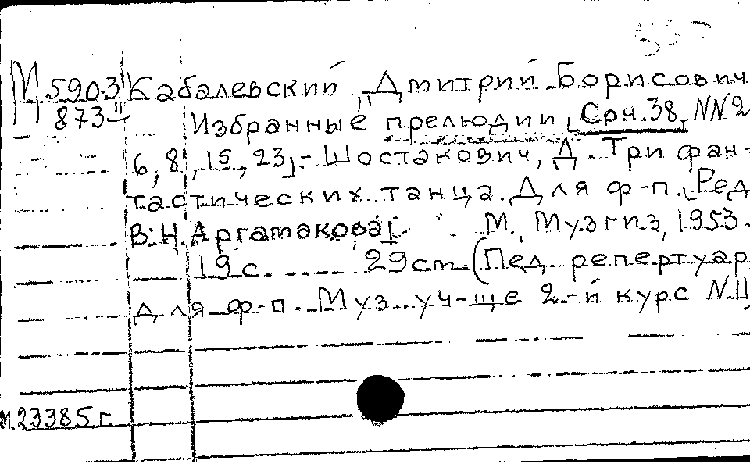 М 5903 Кабалевский, Дмитрий Борисович
873 Избранные прелюдии, Соч. 38, NN 2
6, 8, 15, 23.- Шостакович, Д. Три фан-
тастических танца. Для ф-п. Ред
В.Н. Аргамакова. М., Музгиз, 1953.
19 с. 29 cm. (Пед. репертуар
для ф-п. Муз. уч-ще 2-й курс N
м.23385 г.